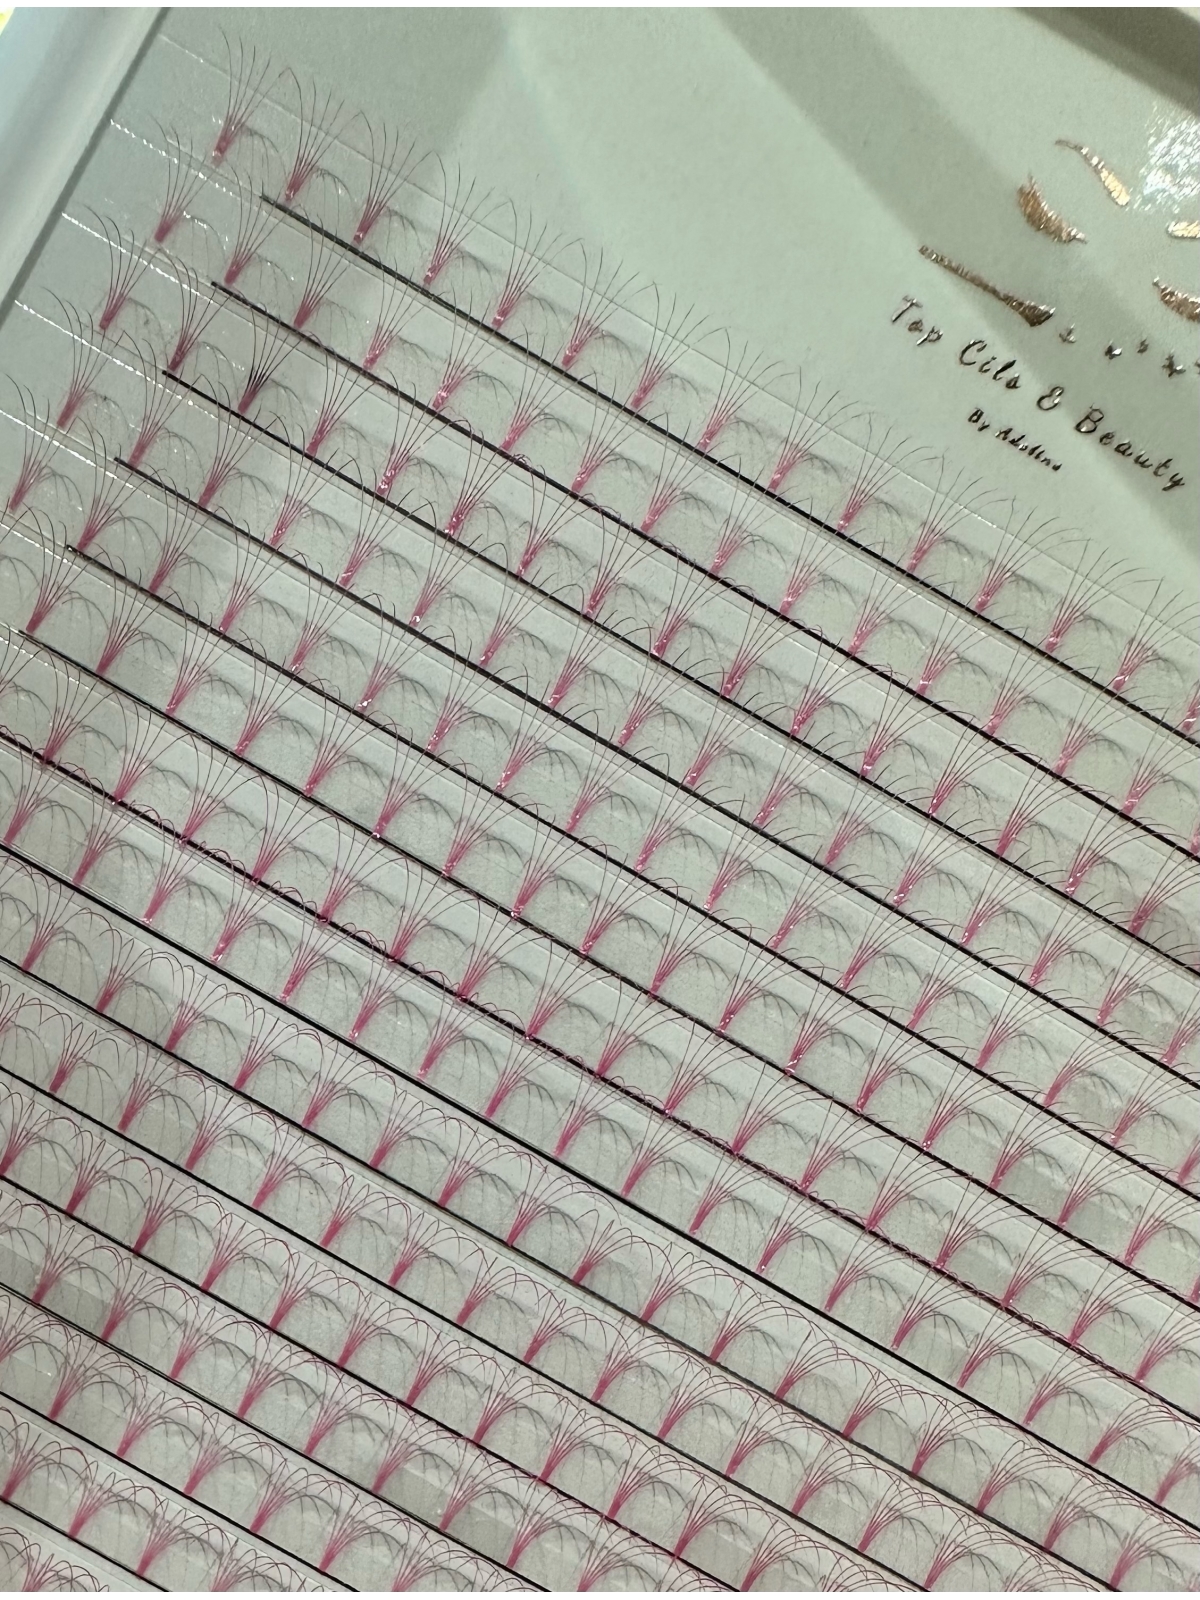 Top Cils & Beauty
By